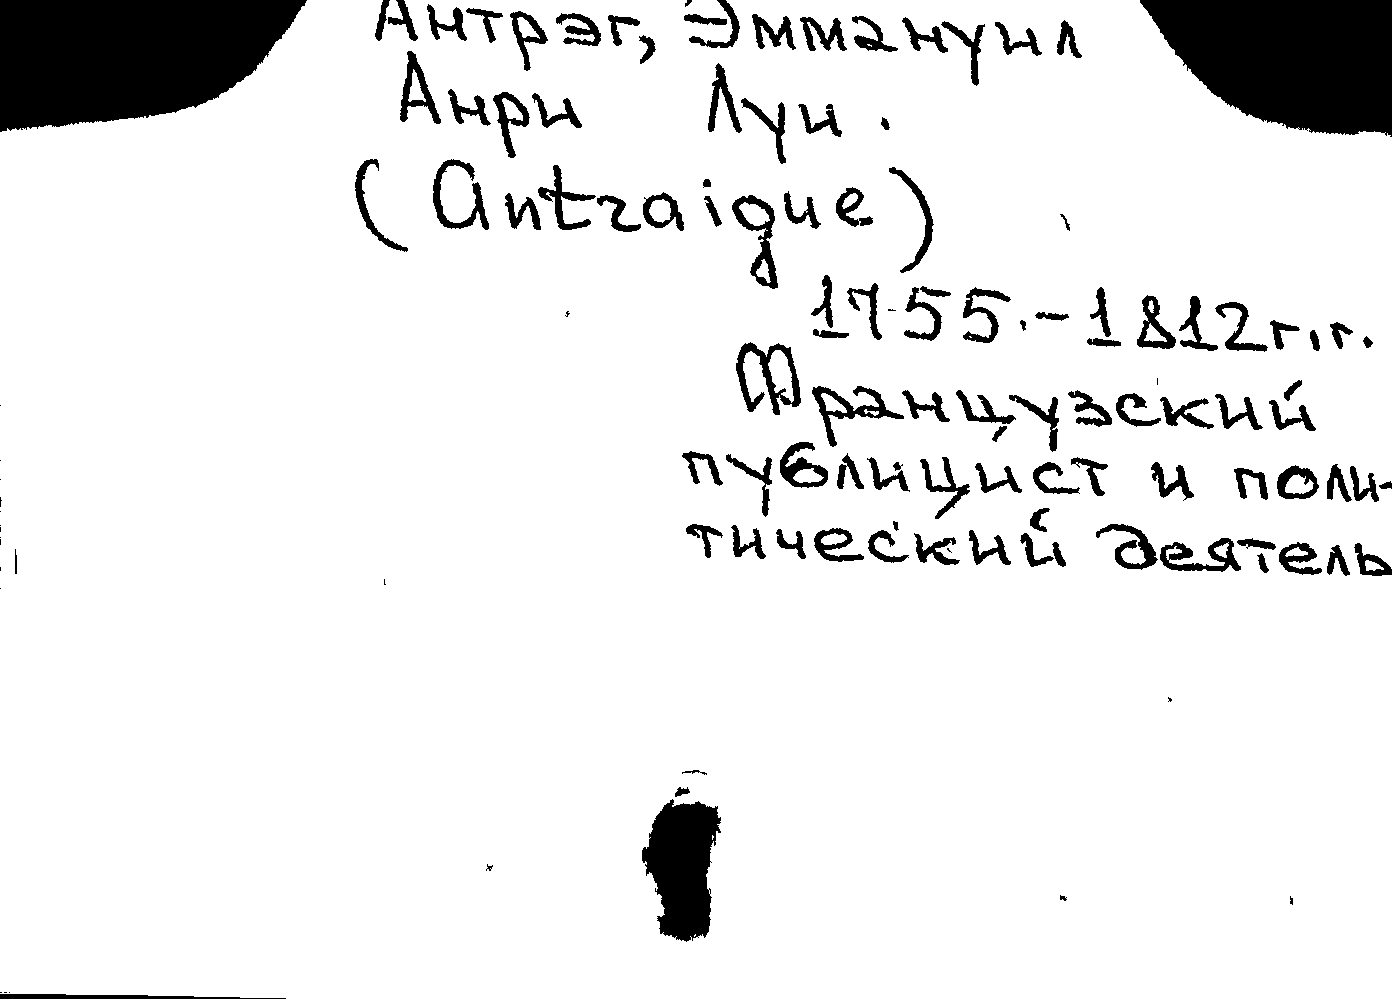 Антрэг, Эммануил
Анри Луи.
(Antraigue)
1755.-1812г.г.
Французский
публицист и поли-
тический деятель